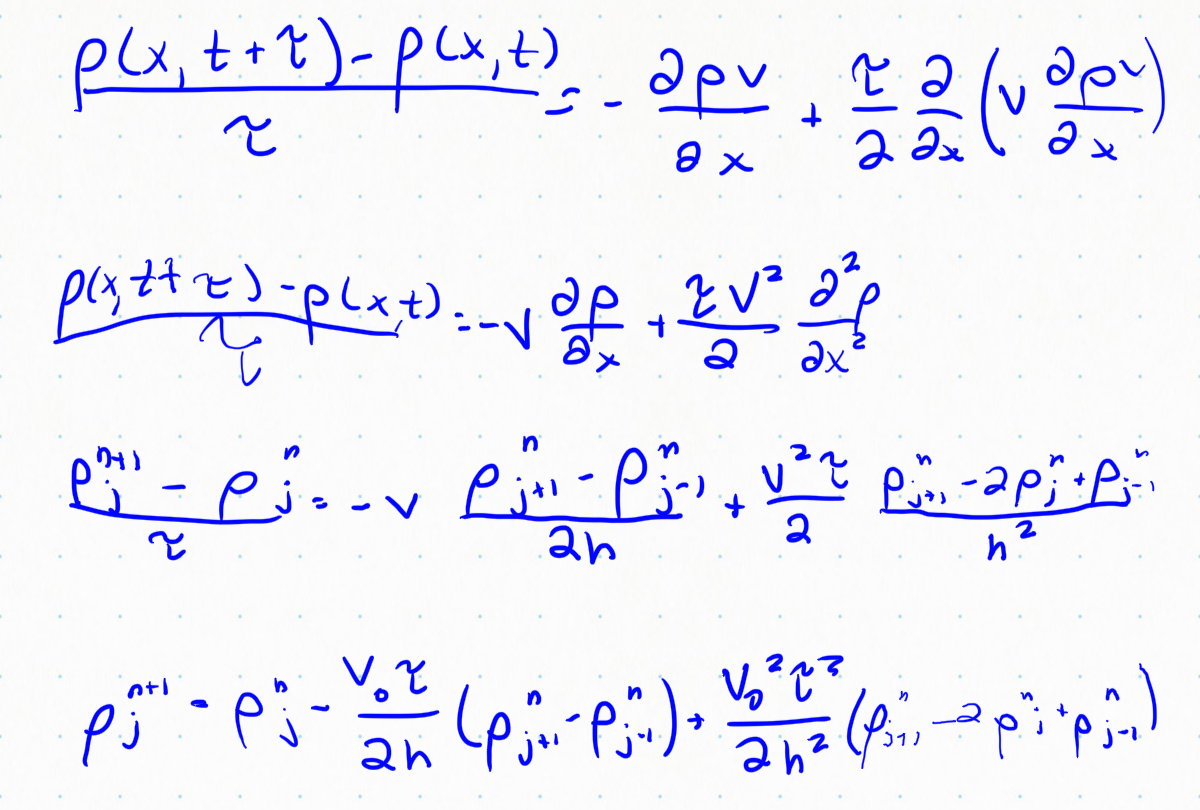 \frac{ρ(x, t+τ) - ρ(x,t)}{τ} = - \frac{∂ρv}{∂x} + \frac{τ}{2} \frac{∂}{∂x} (v \frac{∂ρv}{∂x})
\frac{ρ(x, t+τ) - ρ(x,t)}{τ} = -v \frac{∂ρ}{∂x} + \frac{τv^2}{2} \frac{∂^2ρ}{∂x^2}
\frac{ρ_j^{n+1} - ρ_j^n}{τ} = -v \frac{ρ_{j+1}^n - ρ_{j-1}^n}{2h} + \frac{v^2τ}{2} \frac{ρ_{j+1}^n - 2ρ_j^n + ρ_{j-1}^n}{h^2}
ρ_j^{n+1} - ρ_j^n - \frac{v_0τ}{2h} (ρ_{j+1}^n - ρ_{j-1}^n) + \frac{v_0^2τ^2}{2h^2} (ρ_{j+1}^n - 2ρ_j^n + ρ_{j-1}^n)